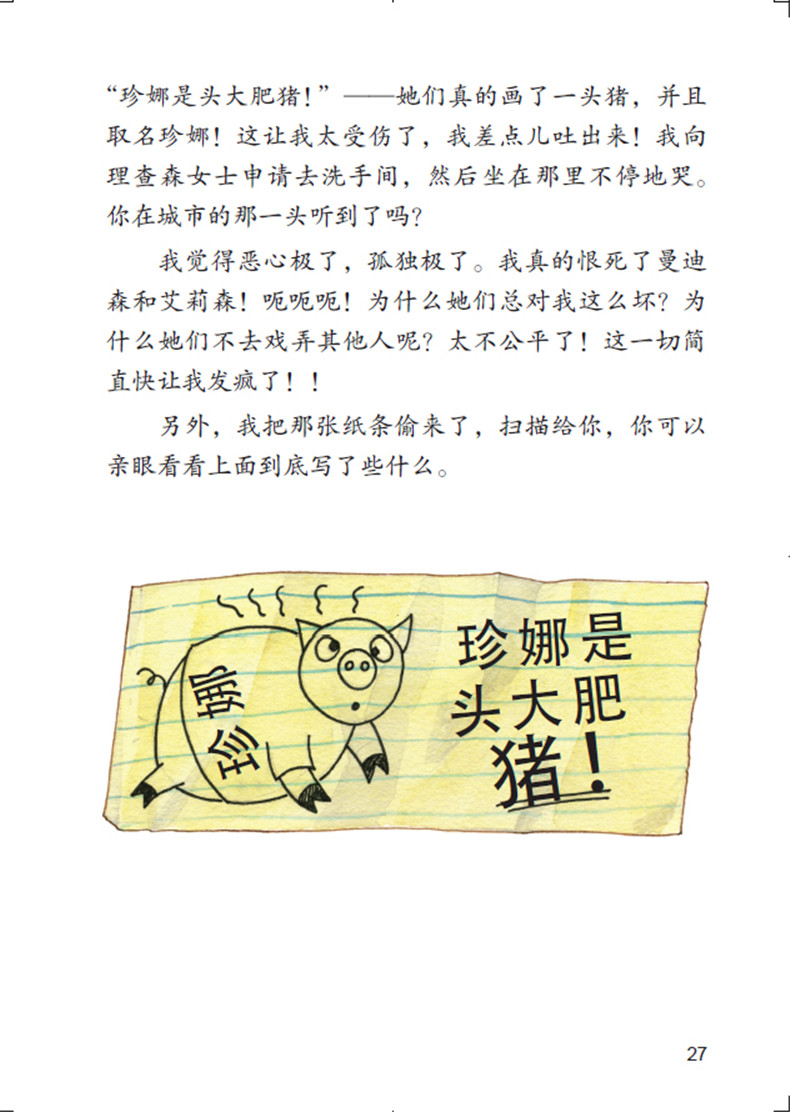 “珍娜是头大肥猪！”——她们真的画了一头猪，并且
取名珍娜！这让我太受伤了，我差点儿吐出来！我向
理查森女士申请去洗手间，然后坐在那里不停地哭。
你在城市的那一头听到了吗？
我觉得恶心极了，孤独极了。我真的恨死了曼迪
森和艾莉森！呃呃呃！为什么她们总对我这么坏？为
什么她们不去戏弄其他人呢？太不公平了！这一切简
直快让我发疯了！！
另外，我把那张纸条偷来了，扫描给你，你可以
亲眼看看上面到底写了些什么。
珍娜
珍娜是
头大肥
猪！
27